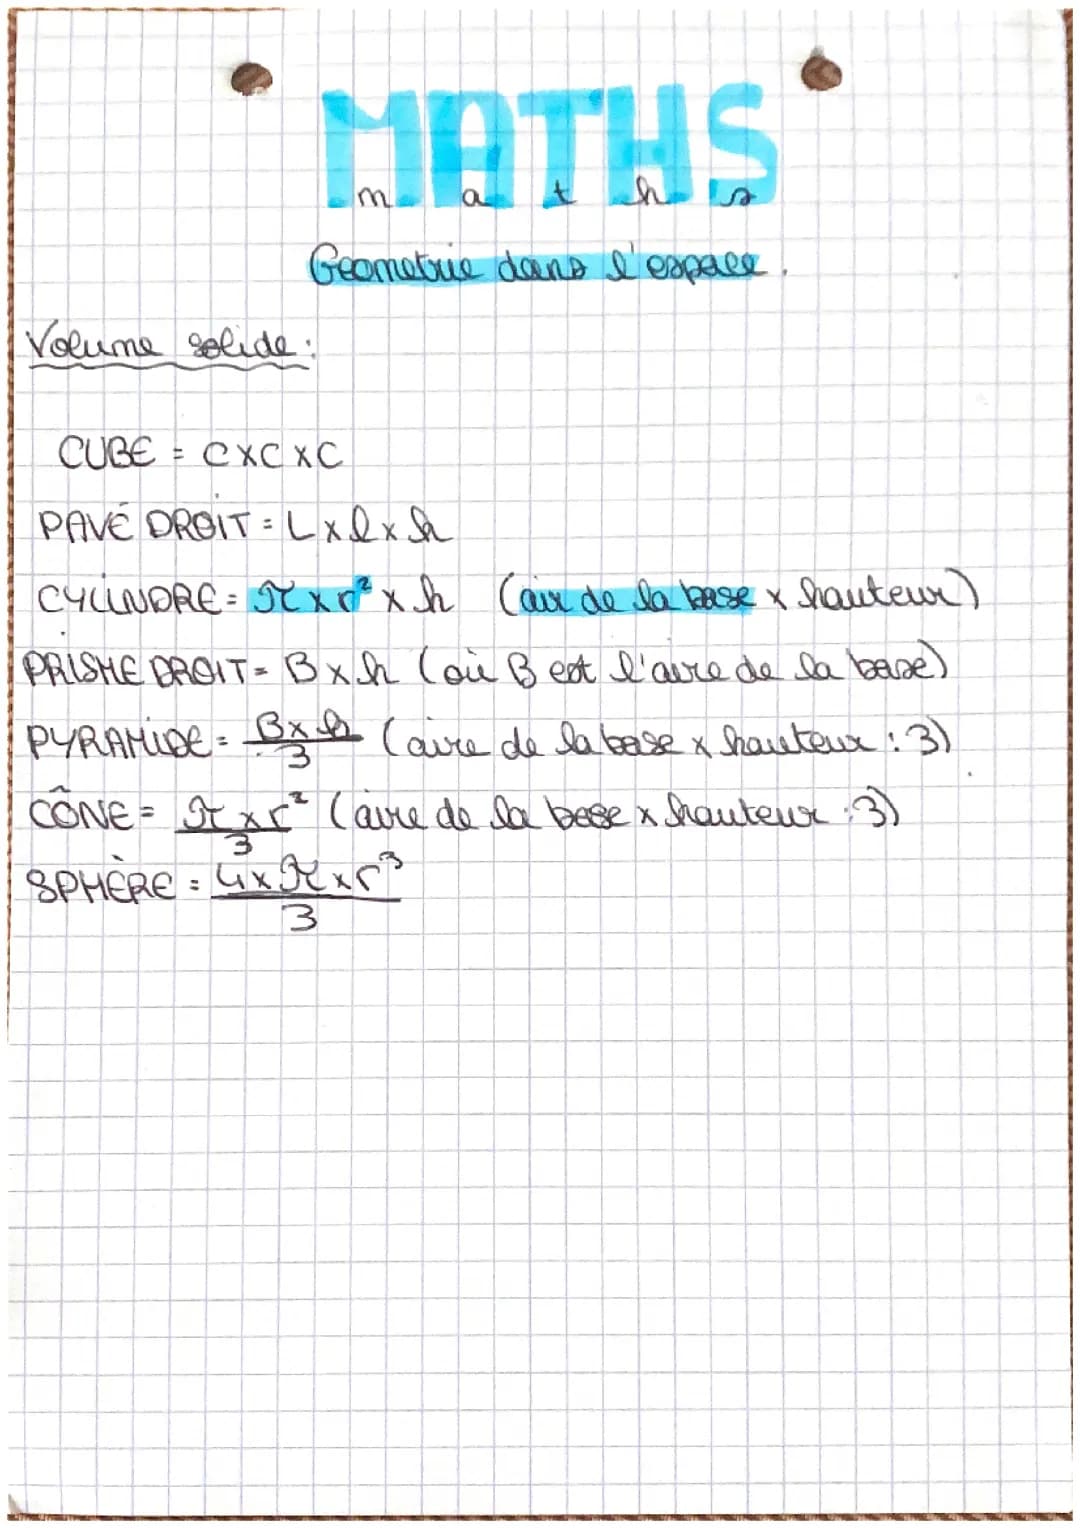 MATHS
maths
Geometrie dans l'espace.
Volume solide :
CUBE = C x C x C
PAVÉ DROIT = L x l x h
CYLINDRE = π x r² x h (air de la base x hauteur)
PRISME DROIT = B x h (où B est l'aire de la base)
PYRAMIDE = B x h / 3 (aire de la base x hauteur : 3)
CÔNE = π x r² / 3 (aire de la base x hauteur : 3)
SPHÈRE = 4 x π x r³ / 3